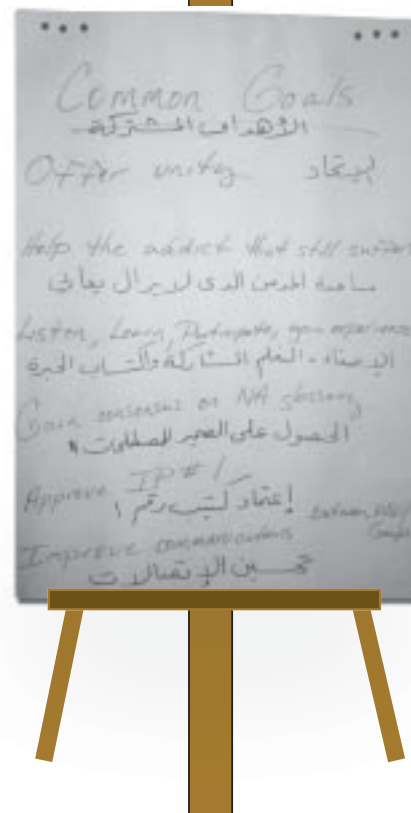 Common Goals
الأهداف المشتركة
Offer unity إيجاد
Help the addict that still suffer
مساعدة المدمن الذي لا يزال يعاني
Listen, Learn, Participate, gain experience
الإستماع - التعلم المشاركة واكتساب الخبرة
Gain consensus on NA glossary
الحصول على الضمير للمصطلحات
Approve IP # 1
إعتماد كتيب رقم ١
Improve communications between
تحسين الإتصالات